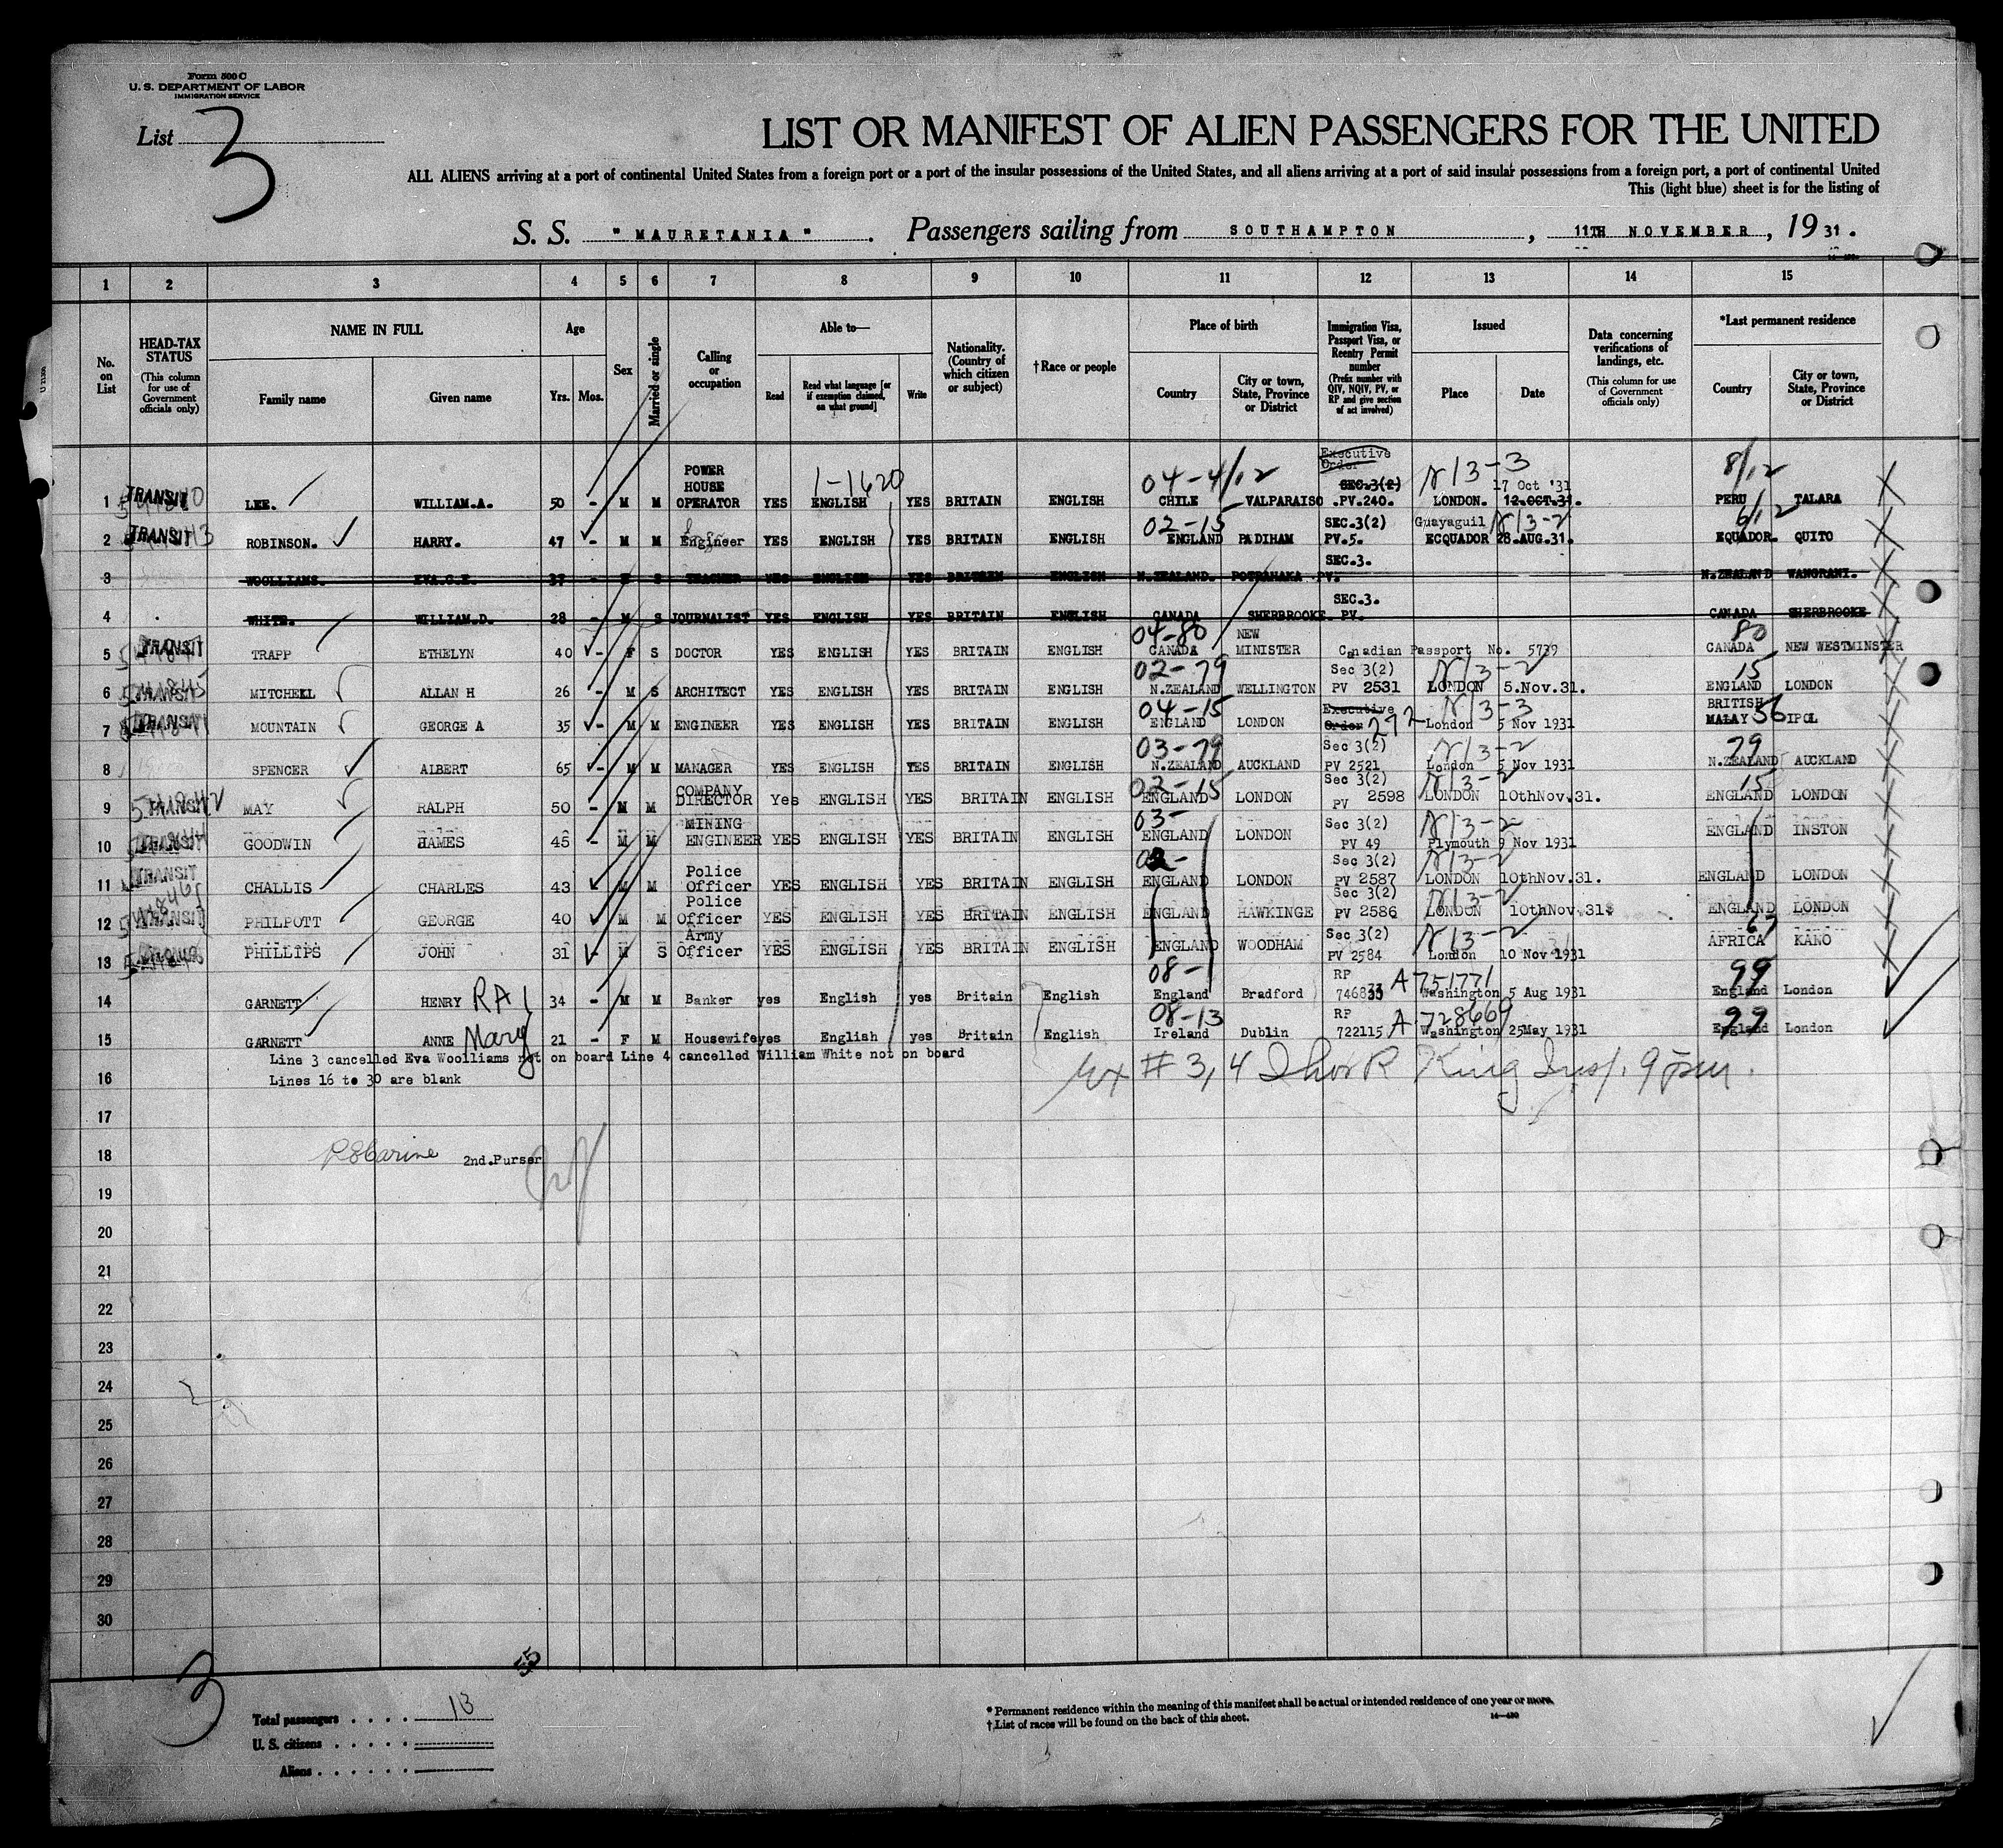 Form 500 C
U. S. DEPARTMENT OF LABOR
IMMIGRATION SERVICE
List 3
LIST OR MANIFEST OF ALIEN PASSENGERS FOR THE UNITED
ALL ALIENS arriving at a port of continental United States from a foreign port or a port of the insular possessions of the United States, and all aliens arriving at a port of said insular possessions from a foreign port, a port of continental United
This (light blue) sheet is for the listing of
S. S. "MAURETANIA". Passengers sailing from SOUTHAMPTON, 11TH NOVEMBER, 19 31.
1 2 3 4 5 6 7 8 9 10 11 12 13 14 15
No. on List
HEAD-TAX STATUS (This column for use of Government officials only)
NAME IN FULL
Family name Given name
Age
Yrs. Mos.
Sex
Married or single
Calling or occupation
Able to—
Read Read what language [or if exemption claimed, on what ground] Write
Nationality. (Country of which citizen or subject)
†Race or people
Place of birth
Country City or town, State, Province or District
Immigration Visa, Passport Visa, or Reentry Permit number (Prefix number with QIV, NQIV, PV, or RP and give section of act involved)
Issued
Place Date
Data concerning verifications of landings, etc. (This column for use of Government officials only)
*Last permanent residence
Country City or town, State, Province or District
1-1620 04-4/12 Executive Order N13-3 8/12
1 TRANSIT LEE. WILLIAM.A. 50 - M M POWER HOUSE OPERATOR YES ENGLISH YES BRITAIN ENGLISH CHILE VALPARAISO SEC.3(2) .PV.240. LONDON. 17 Oct '31 12.OCT.31. PERU TALARA
02-15 N13-2 6/12
2 TRANSIT ROBINSON. HARRY. 47 - M M Engineer YES ENGLISH YES BRITAIN ENGLISH ENGLAND PADIHAM SEC.3(2) PV.5. Guayaguil ECQUADOR 28.AUG.31. EQUADOR. QUITO
3 WOOLLIAMS. EVA.C.E. 37 - F S TEACHER YES ENGLISH YES BRITAIN ENGLISH N.ZEALAND. SEC.3. PV. N.ZEALAND
4 WHITE. WILLIAM.D. 28 - M S JOURNALIST YES ENGLISH YES BRITAIN ENGLISH CANADA SHERBROOKE. SEC.3. PV. CANADA SHERBROOKE
04-80 80
5 TRANSIT TRAPP ETHELYN 40 - F S DOCTOR YES ENGLISH YES BRITAIN ENGLISH CANADA NEW MINISTER Canadian Passport No. 5739 CANADA NEW WESTMINSTER
02-79 N13-2 15
6 TRANSIT MITCHELL ALLAN H 26 - M S ARCHITECT YES ENGLISH YES BRITAIN ENGLISH N.ZEALAND WELLINGTON Sec 3(2) PV 2531 LONDON 5.Nov.31. ENGLAND LONDON
04-15 N13-3
7 TRANSIT MOUNTAIN GEORGE A 35 - M M ENGINEER YES ENGLISH YES BRITAIN ENGLISH ENGLAND LONDON Executive Order 272 London 5 Nov 1931 BRITISH MALAY 56 IPOL
03-79 N13-2 79
8 SPENCER ALBERT 65 - M M MANAGER YES ENGLISH YES BRITAIN ENGLISH N.ZEALAND AUCKLAND Sec 3(2) PV 2521 London 5 Nov 1931 N.ZEALAND AUCKLAND
02-15 N13-2 15
9 TRANSIT MAY RALPH 50 - M M COMPANY DIRECTOR Yes ENGLISH YES BRITAIN ENGLISH ENGLAND LONDON Sec 3(2) PV 2598 LONDON 10thNov.31. ENGLAND LONDON
03- N13-2
10 TRANSIT GOODWIN HAMES 45 - M M MINING ENGINEER YES ENGLISH YES BRITAIN ENGLISH ENGLAND LONDON Sec 3(2) PV 49 Plymouth 9 Nov 1931 ENGLAND INSTON
02- N13-2
11 TRANSIT CHALLIS CHARLES 43 M M Police Officer YES ENGLISH YES BRITAIN ENGLISH ENGLAND LONDON Sec 3(2) PV 2587 LONDON 10thNov.31. ENGLAND LONDON
N13-2
12 TRANSIT PHILPOTT GEORGE 40 M M Police Officer YES ENGLISH YES BRITAIN ENGLISH ENGLAND HAWKINGE Sec 3(2) PV 2586 LONDON 10thNov.31. ENGLAND LONDON
N13-2 67
13 PHILLIPS JOHN 31 - M S Army Officer YES ENGLISH YES BRITAIN ENGLISH ENGLAND WOODHAM Sec 3(2) PV 2584 London 10 Nov 1931 AFRICA KANO
08- A751771 99
14 GARNETT HENRY RA 34 - M M Banker yes English yes Britain English England Bradford RP 746833 Washington 5 Aug 1931 England London
08-13 A728669 99
15 GARNETT ANNE Mary 21 - F M Housewife yes English yes Britain English Ireland Dublin RP 722115 Washington 25May 1931 England London
Line 3 cancelled Eva Woolliams not on board Line 4 cancelled William White not on board
16 Lines 16 to 30 are blank
# 3, 4 King Insp. 9
17
18 2nd.Purser
19
20
21
22
23
24
25
26
27
28
29
30
3
Total passengers . . . . 13
U. S. citizens . . . . .
Aliens . . . . . .
* Permanent residence within the meaning of this manifest shall be actual or intended residence of one year or more.
† List of races will be found on the back of this sheet.
14—430